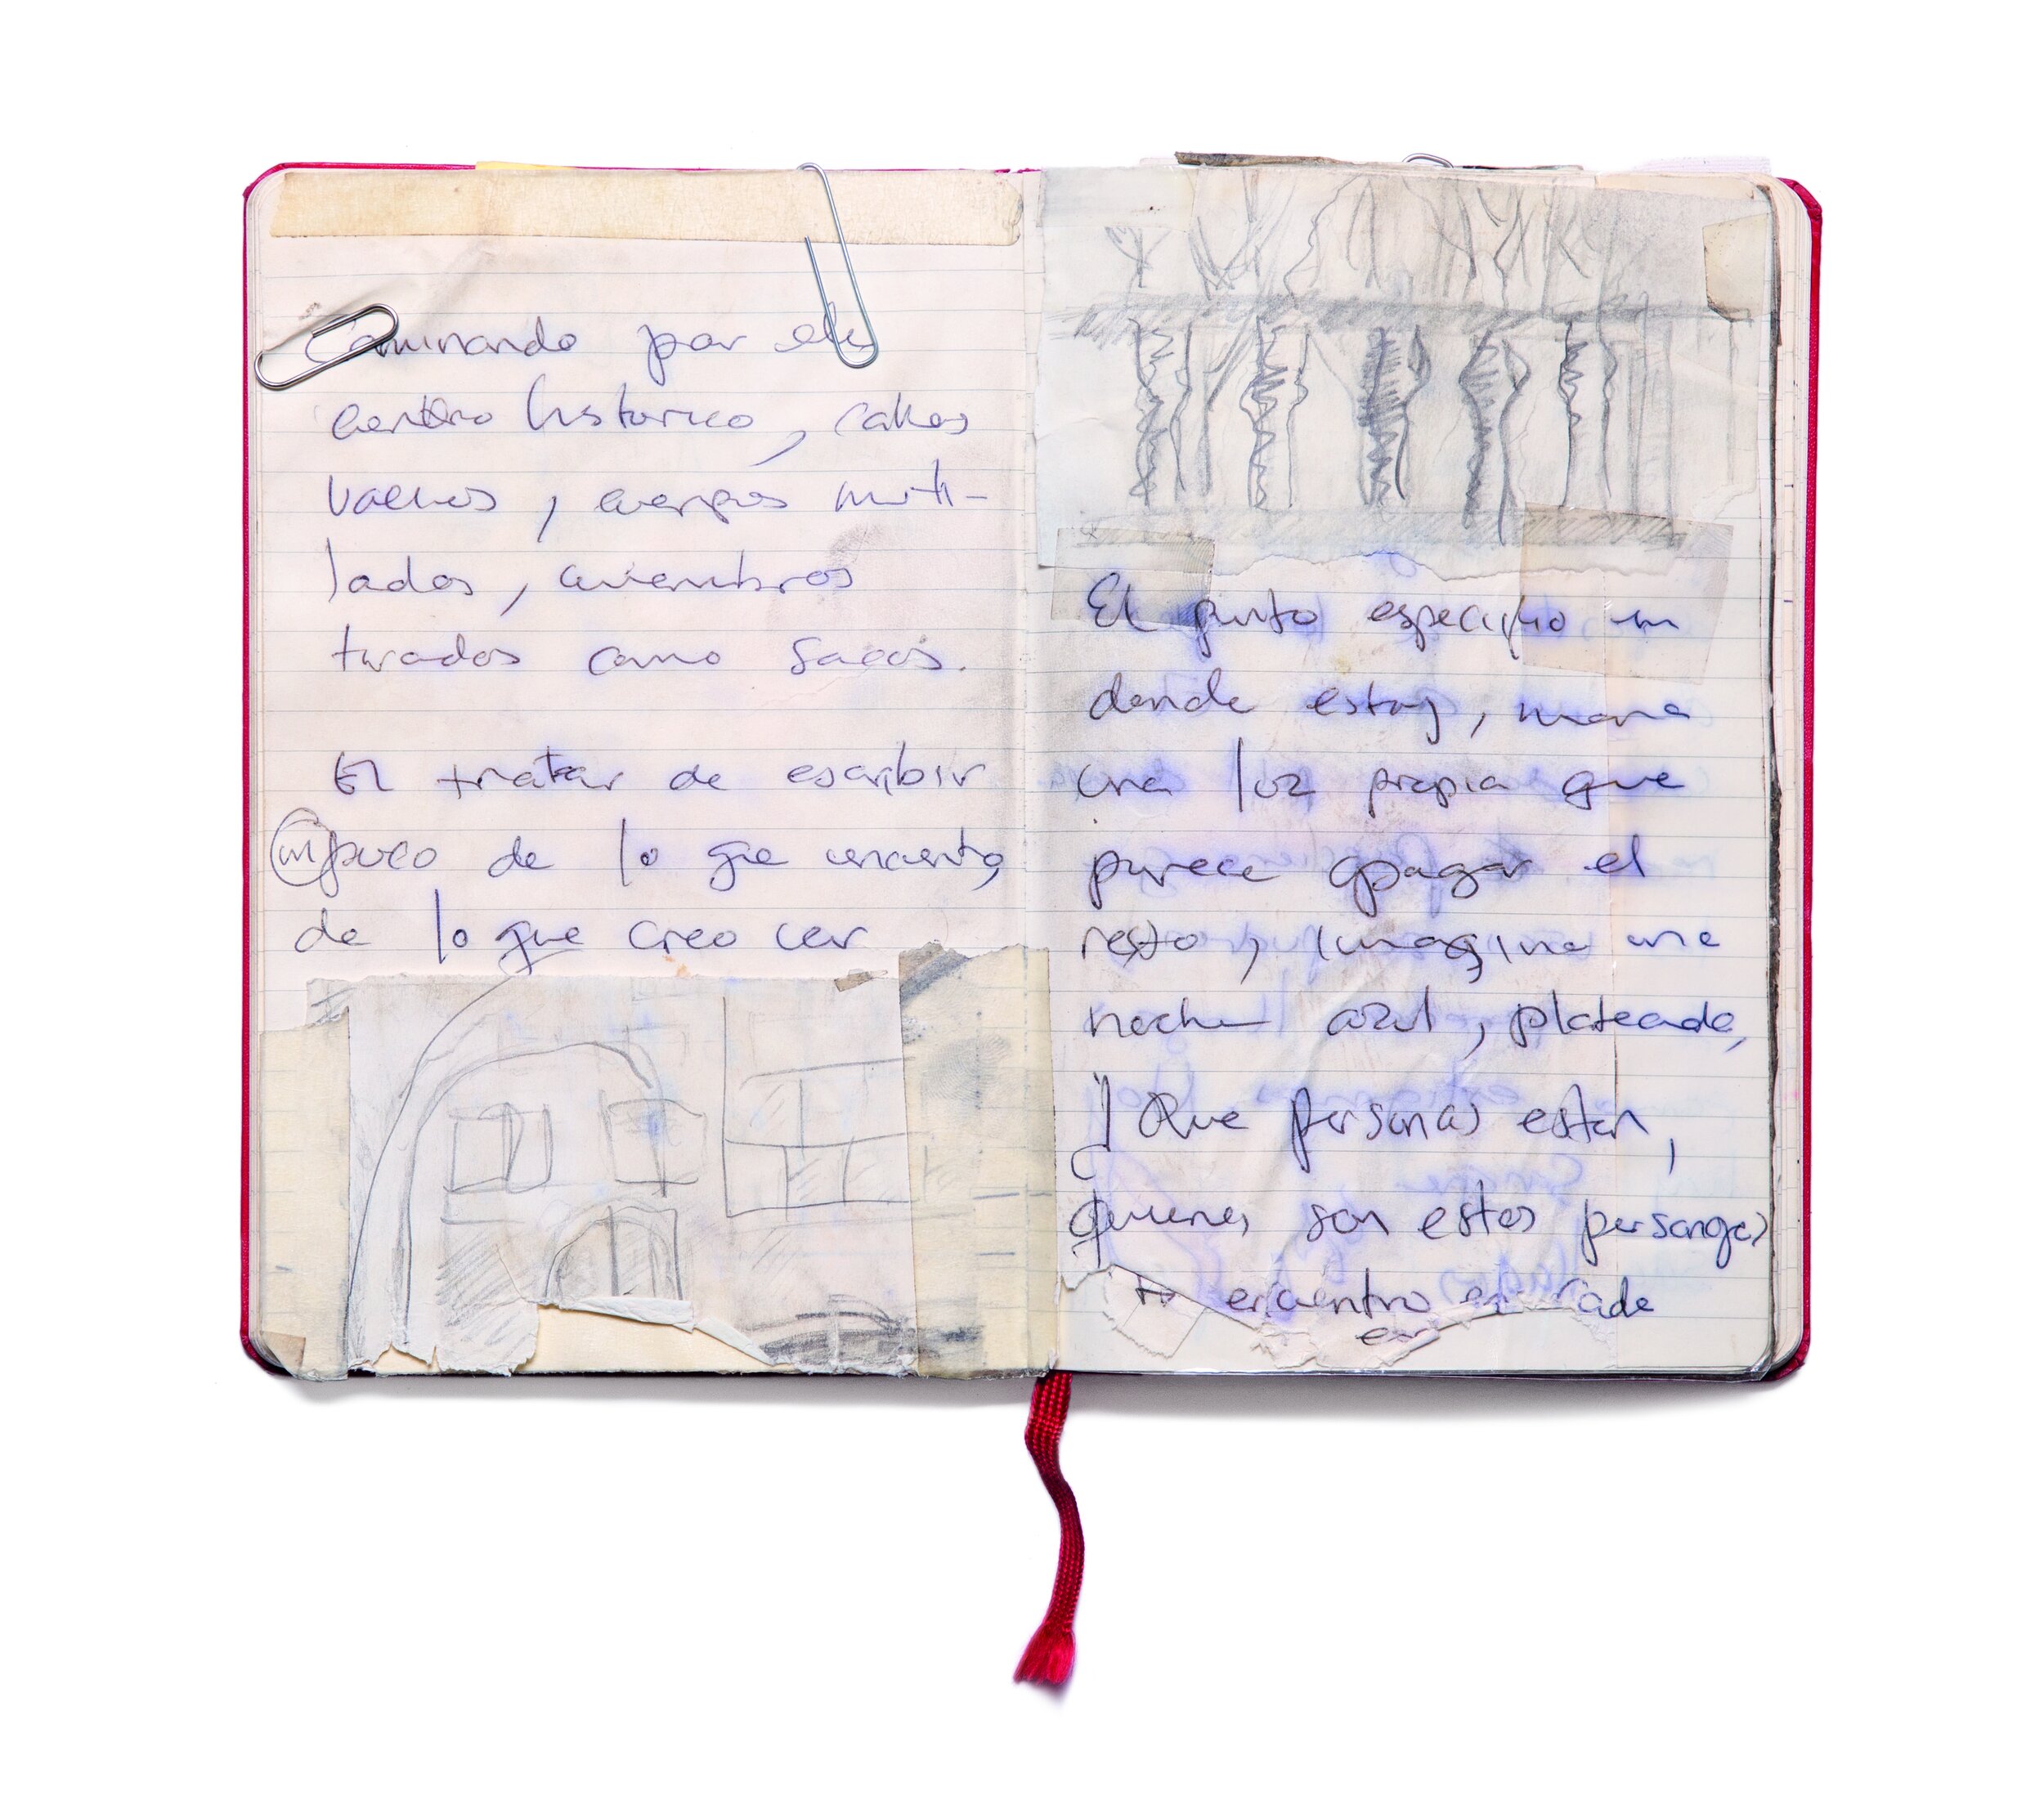 Caminando por el
centro historico, calles
vacias, cuerpos muti-
lados, miembros
tirados como sacos.
El tratar de escribir
un poco de lo que encuentro,
de lo que creo ver
El punto especifico en
donde estoy, mana
una luz propia que
parece apagar el
resto, imagina una
noche azul, plateada,
Que personas estan,
Quienes son estos personajes
encuentro en cada
en